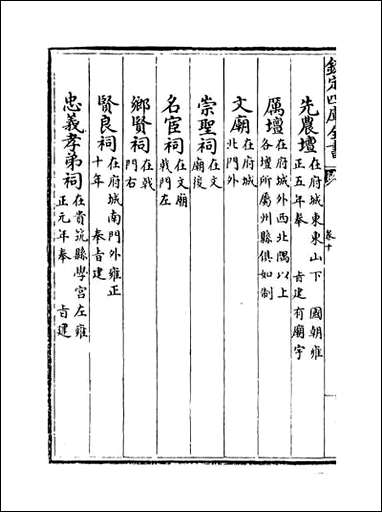 欽定四庫全書
卷十
先農壇在府城東東山下 國朝雍
正五年奉 旨建有廟宇
厲壇在府城外西北隅以上
各壇所屬州縣俱如制
文廟在府城
北門外
崇聖祠在文
廟後
名宦祠在文廟
戟門左
鄉賢祠在戟
門右
賢良祠在府城南門外雍正
十年 奉旨建
忠義孝弟祠在貴筑縣學宮左雍
正元年奉 旨建